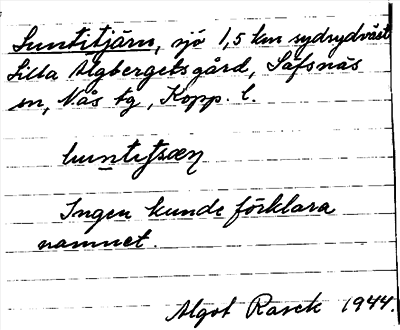 Suntitjärn, sjö 1,5 km sydsydväst
Lilla Älgbergets gård, Säfsnäs
sn, Nås tg, Kopp. l.
Ingen kunde förklara
namnet.
Algot Rasck 1944.